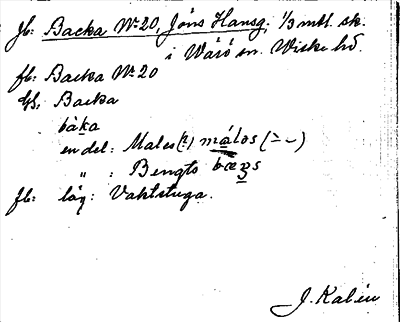 Jb: Backa No 20, Jöns Hansg. 1/3 mtl. sk.
i Wärö sn. Wiske hd.
fb: Backa No 20
Backa
båka
en del: Males (?) málos (⸌ ⏑)
" : Bengts bæŋs
fb: läg: Vaktstuga.
J. Kalén